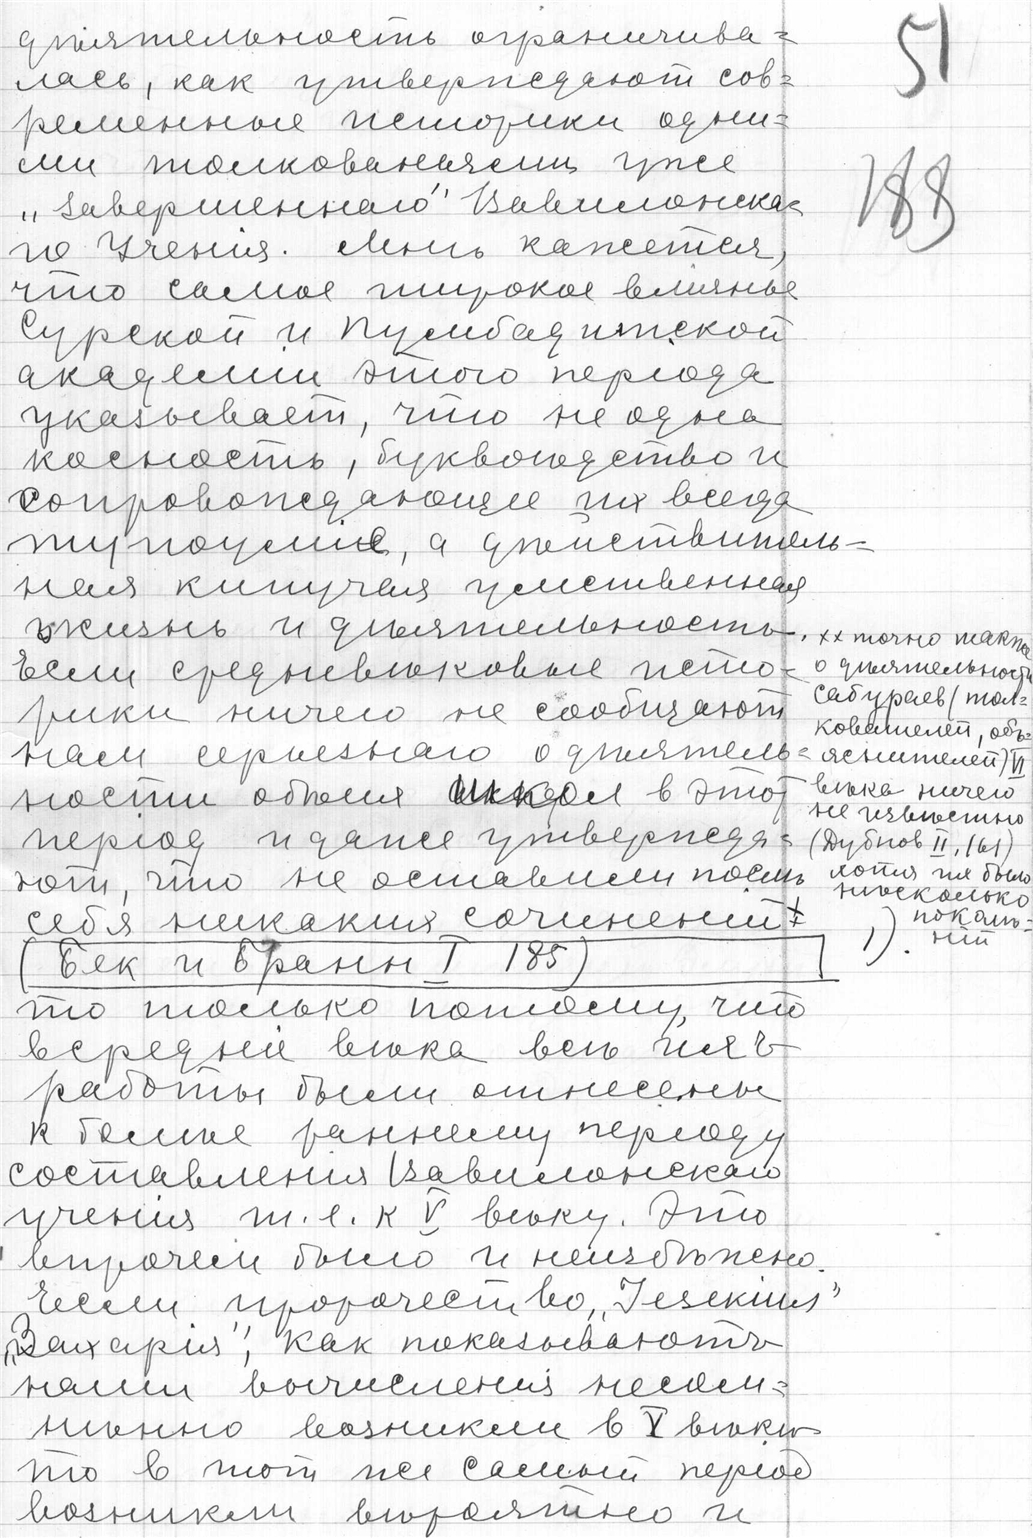 51
188
дѣятельность ограничива=
лась, как утверждают сов=
ременные историки одни=
ми толкованиями уже
„завершеннаго" Вавилонска=
го Учения. Мнѣ кажется,
что самое широкое влияние
Сурской и Пумбадитской
академии этого периода
указывает, что не одна
косность, буквоѣдство и
сопровождающее их всегда
тупоумие, а дѣйствитель=
ная кипучая умственная
жизнь и дѣятельность.
Если средневѣковые исто=
рики ничего не сообщают
нам серьезнаго о дѣятель=
ности обѣих школ в этот
період и даже утвержда=
ют, что не оставили послѣ
себя никаких сочинений х
(Бек и Бранн I 185)
то только потому, что
в среднiе вѣка всѣ ихъ
работы были отнесены
к болѣе раннему периоду
составления Вавилонскаго
учения т.е. к V вѣку. Это
впрочем было и неизбѣжно.
Если пророчество „Іезекииль"
„Захарія", как показываютъ
наши вычисления несом=
нѣнно возникли в V вѣкѣ
то в тот же самый період
возникли вѣроятно и
хх точно также
о дѣятельности
сабураев (тол=
кователей, объ=
яснителей) VI
вѣка ничего
не извѣстно
(Дубнов II, 161)
хотя их было
нѣсколько
поколѣ=
ний
1).